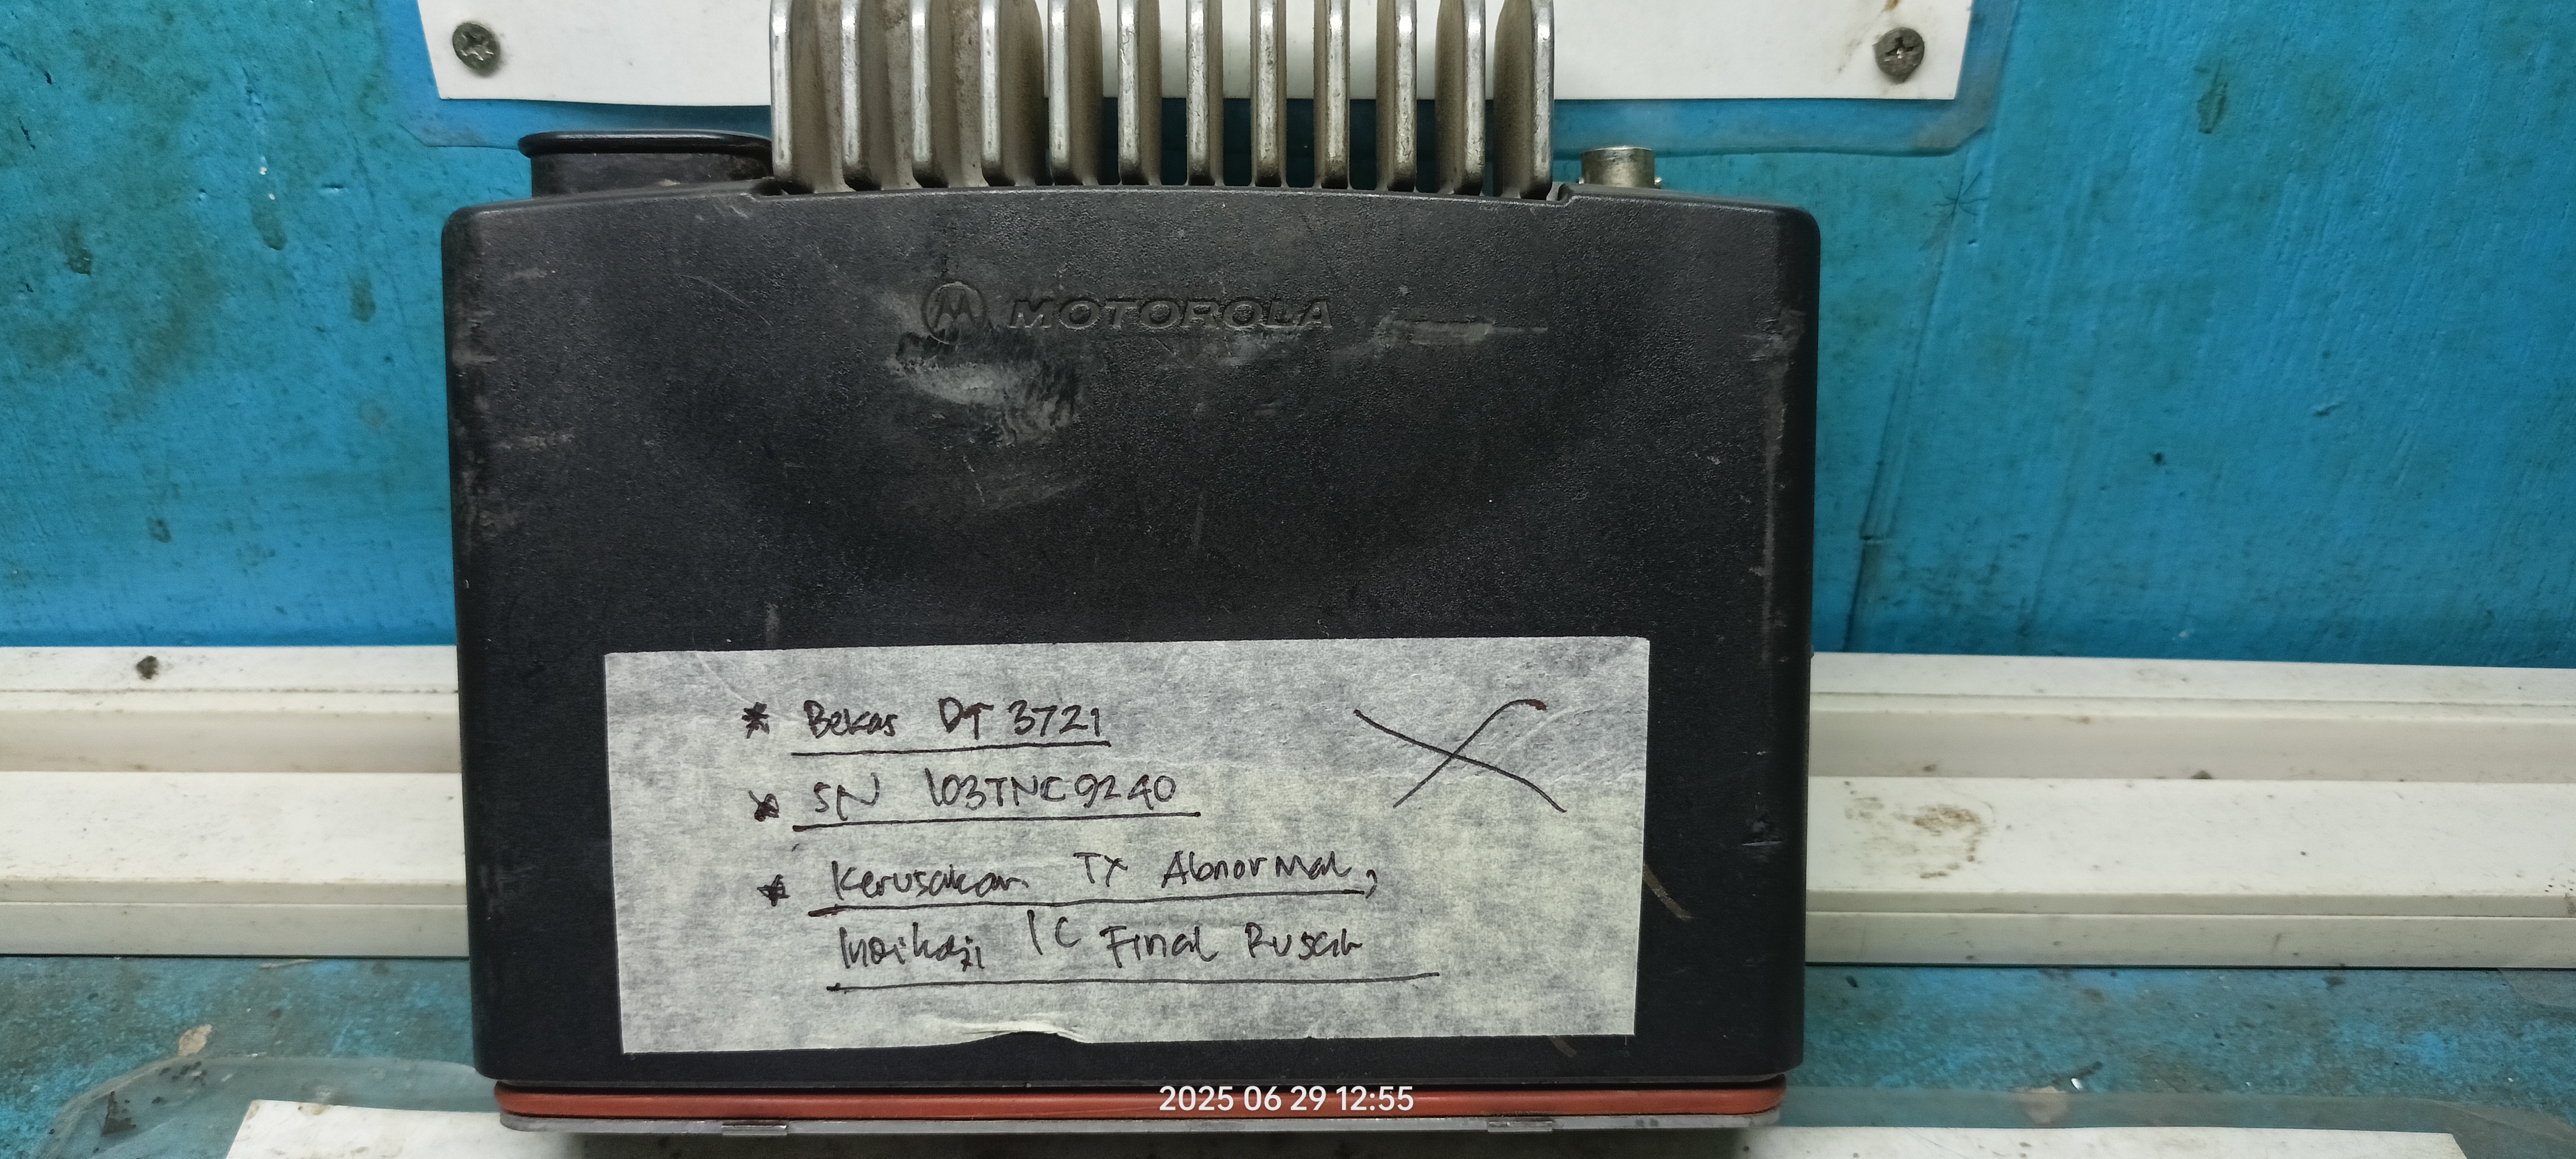 MOTOROLA
* Bekas DT 3721
* SN 103TNC9240
* Kerusakan Tx Abnormal,
Indikasi IC Final Rusak
2025 06 29 12:55